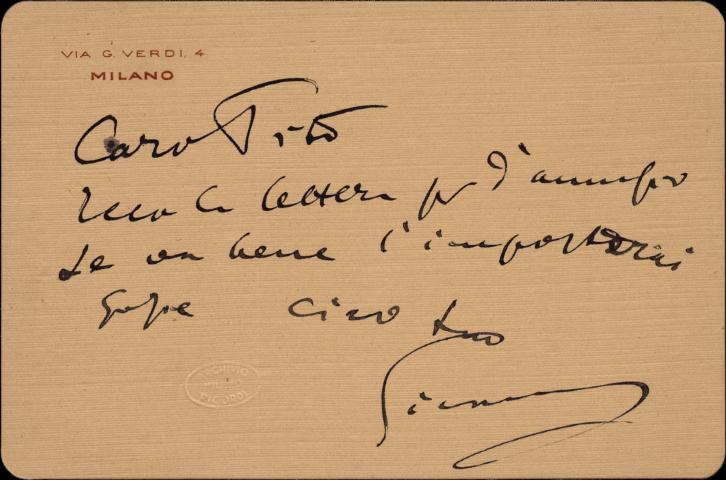 VIA G. VERDI, 4
MILANO
Caro Tito
Ecco la lettera per d'annunzio
Se va bene l'imposterai
Ciao tuo
ARCHIVIO
RICORDI